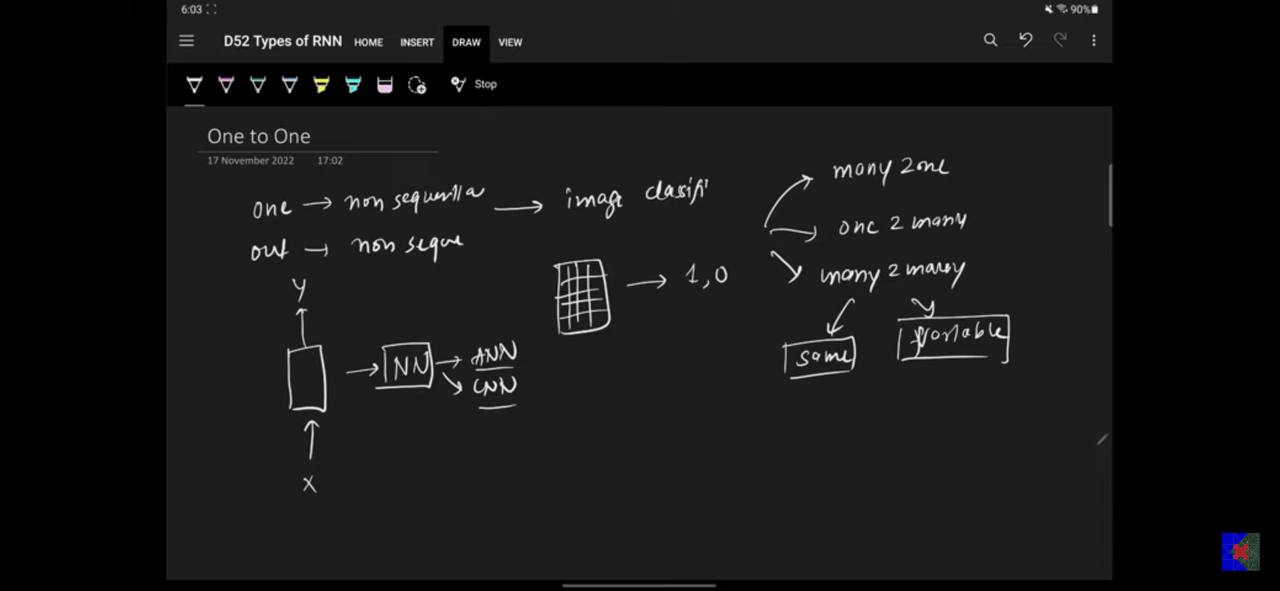 6:03
90%
D52 Types of RNN HOME INSERT DRAW VIEW
Stop
One to One
17 November 2022 17:02
one → non sequentia → image clasifi
out → non seque
→ 1,0
y
→ NN → ANN
CNN
x
many 2 one
one 2 many
many 2 many
same
variable